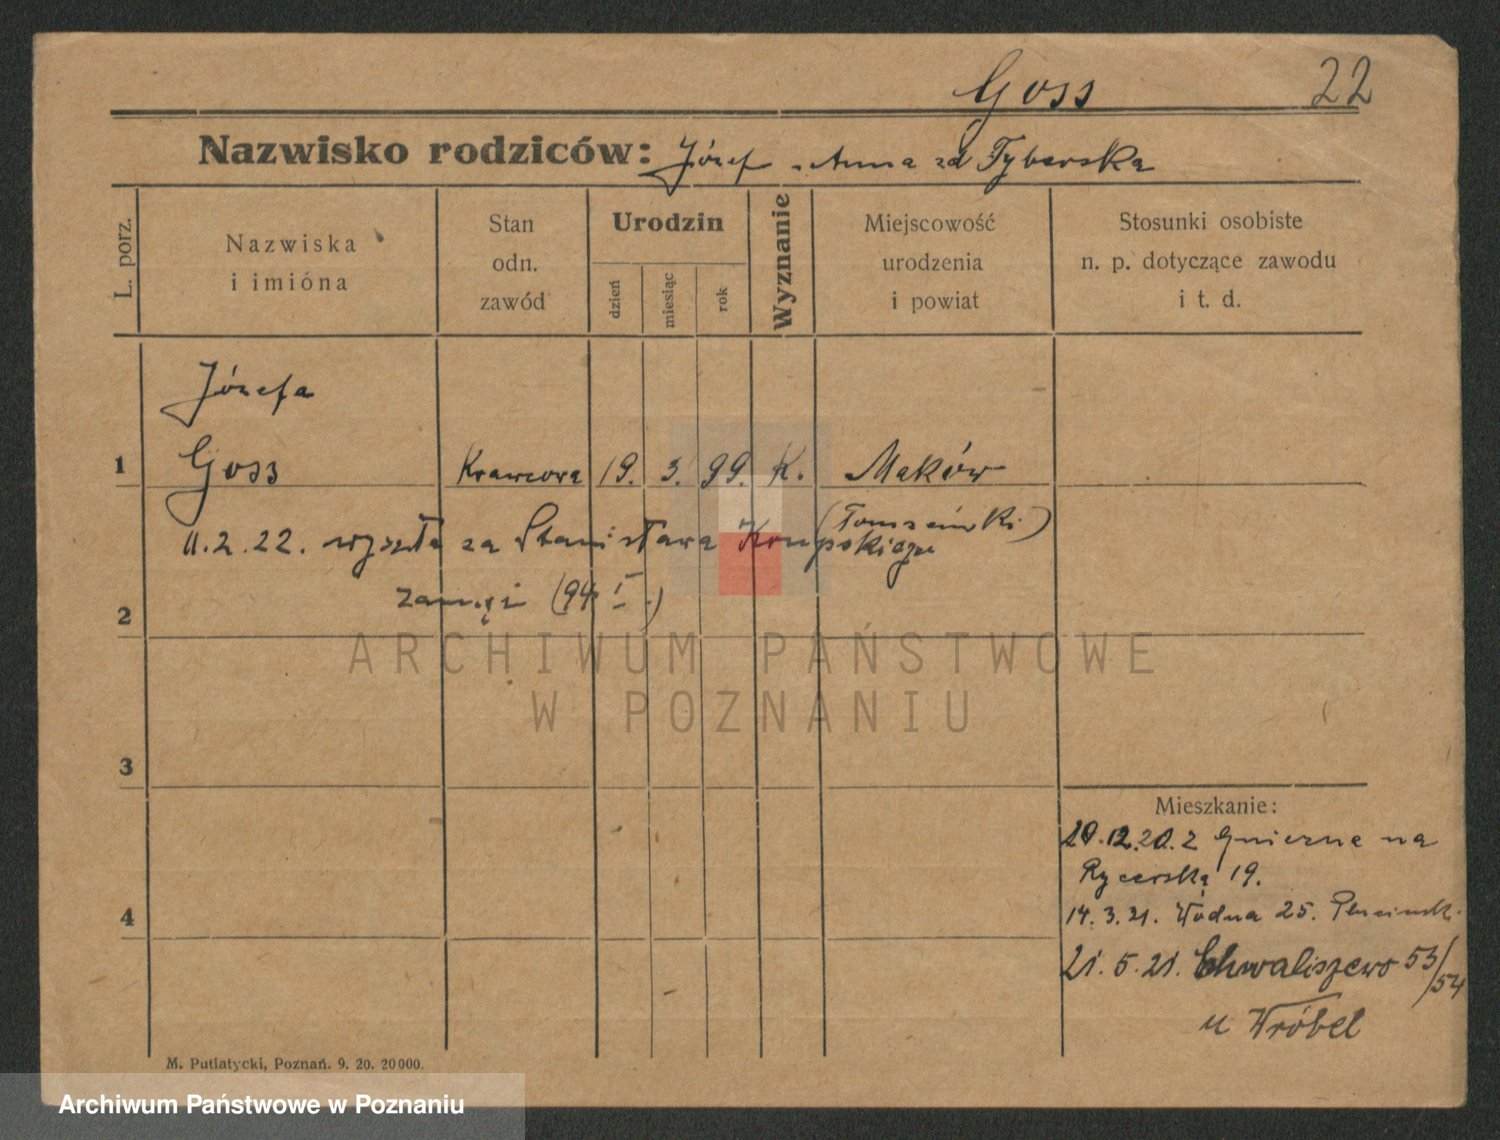 Goss 22
Nazwisko rodziców: Józef Anna zd Tyberska
L. porz.
Nazwiska
i imióna
Stan
odn.
zawód
Urodzin
dzień
miesiąc
rok
Wyznanie
Miejscowość
urodzenia
i powiat
Stosunki osobiste
n. p. dotyczące zawodu
i t. d.
Józefa
1 Goss Krawcowa 19. 3. 99. K. Maków
11.2.22. wyszła za Stanisława
zamęż (94 I.)
2
3
4
Mieszkanie:
20.12.20. z Gniezna na
Rycerską 19.
14.3.21. Wodna 25.
21.5.21. Chwaliszewo 53/54
u Wróbel
M. Putiatycki, Poznań. 9. 20. 20000.
ARCHIWUM PAŃSTWOWE
W POZNANIU
Archiwum Państwowe w Poznaniu